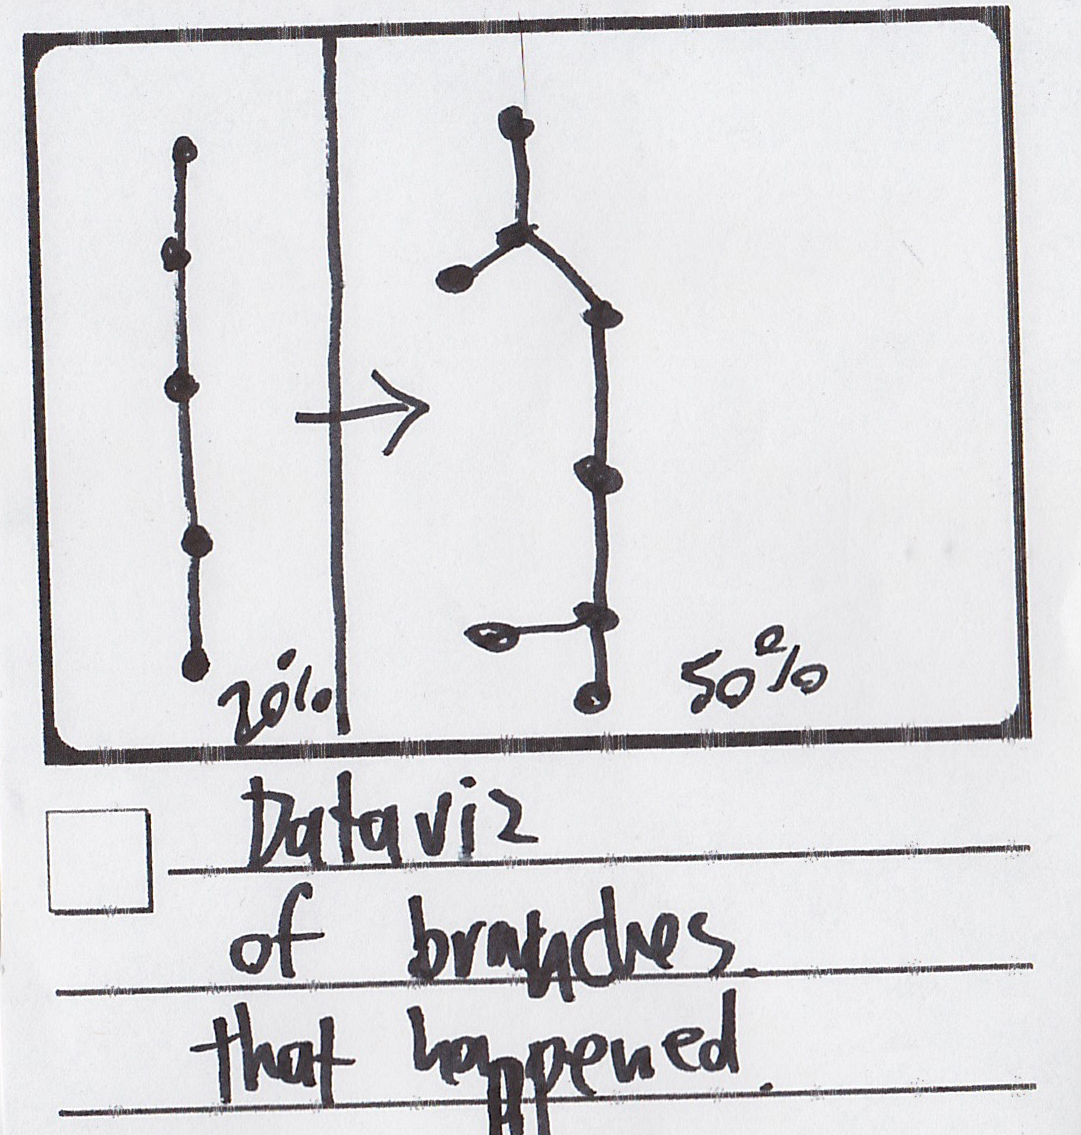 20%
50%
Dataviz
of branches.
that happened.